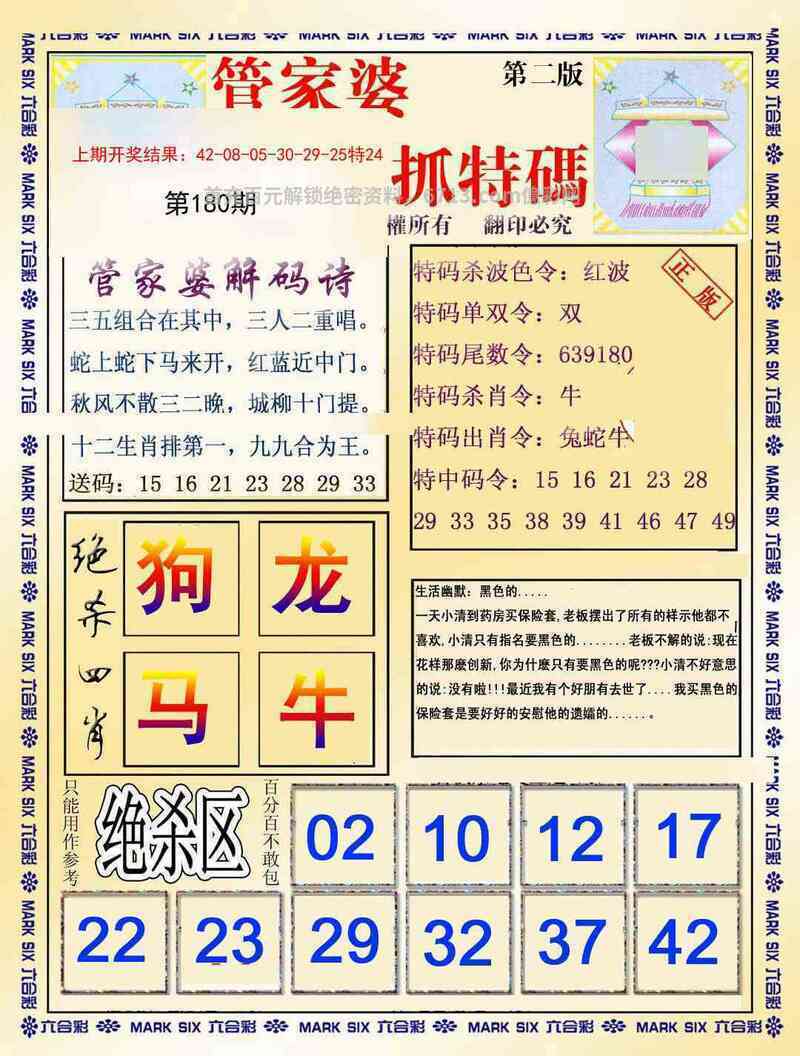 MARK SIX 六合彩
管家婆
第二版
抓特碼
上期开奖结果：42-08-05-30-29-25特24
第180期
權所有 翻印必究
管家婆解码诗
三五组合在其中，三人二重唱。
蛇上蛇下马来开，红蓝近中门。
秋风不散三二晚，城柳十门提。
十二生肖排第一，九九合为王。
送码：15 16 21 23 28 29 33
正版
特码杀波色令：红波
特码单双令：双
特码尾数令：639180
特码杀肖令：牛
特码出肖令：兔蛇牛
特中码令：15 16 21 23 28
29 33 35 38 39 41 46 47 49
绝杀四肖
狗 龙
马 牛
生活幽默：黑色的.....
一天小清到药房买保险套,老板摆出了所有的样示他都不
喜欢,小清只有指名要黑色的........老板不解的说:现在
花样那麽创新,你为什麽只有要黑色的呢???小清不好意思
的说:没有啦!!!最近我有个好朋有去世了....我买黑色的
保险套是要好好的安慰他的遗孀的......。
只能用作参考
绝杀区
百分百不敢包
02 10 12 17
22 23 29 32 37 42
六合彩 MARK SIX 六合彩 MARK SIX 六合彩 MARK SIX 六合彩 MARK SIX 六合彩